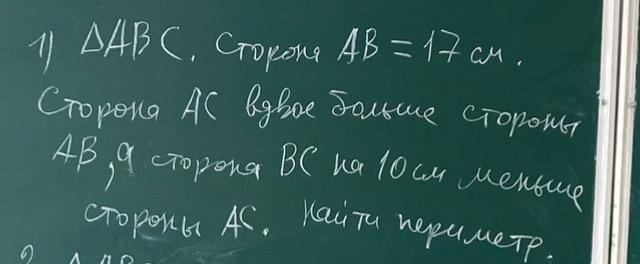 1) ΔABC. Сторона AB = 17 см.
Сторона AC вдвое больше стороны
AB, а сторона BC на 10 см меньше
стороны AC. Найти периметр.